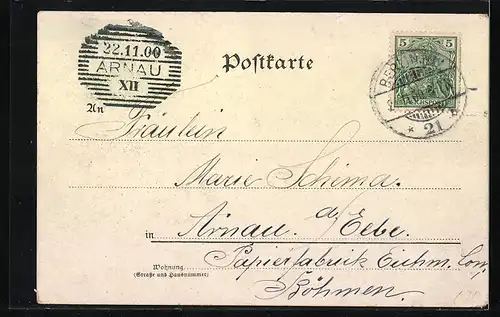 22.11.00
ARNAU
XII
Postkarte
5 5
An
Fräulein
Marie Schima.
in Arnau. a/ Elbe.
Papierfabrik Eichm. Com.
Wohnung
(Straße und Hausnummer)
Böhmen.
21